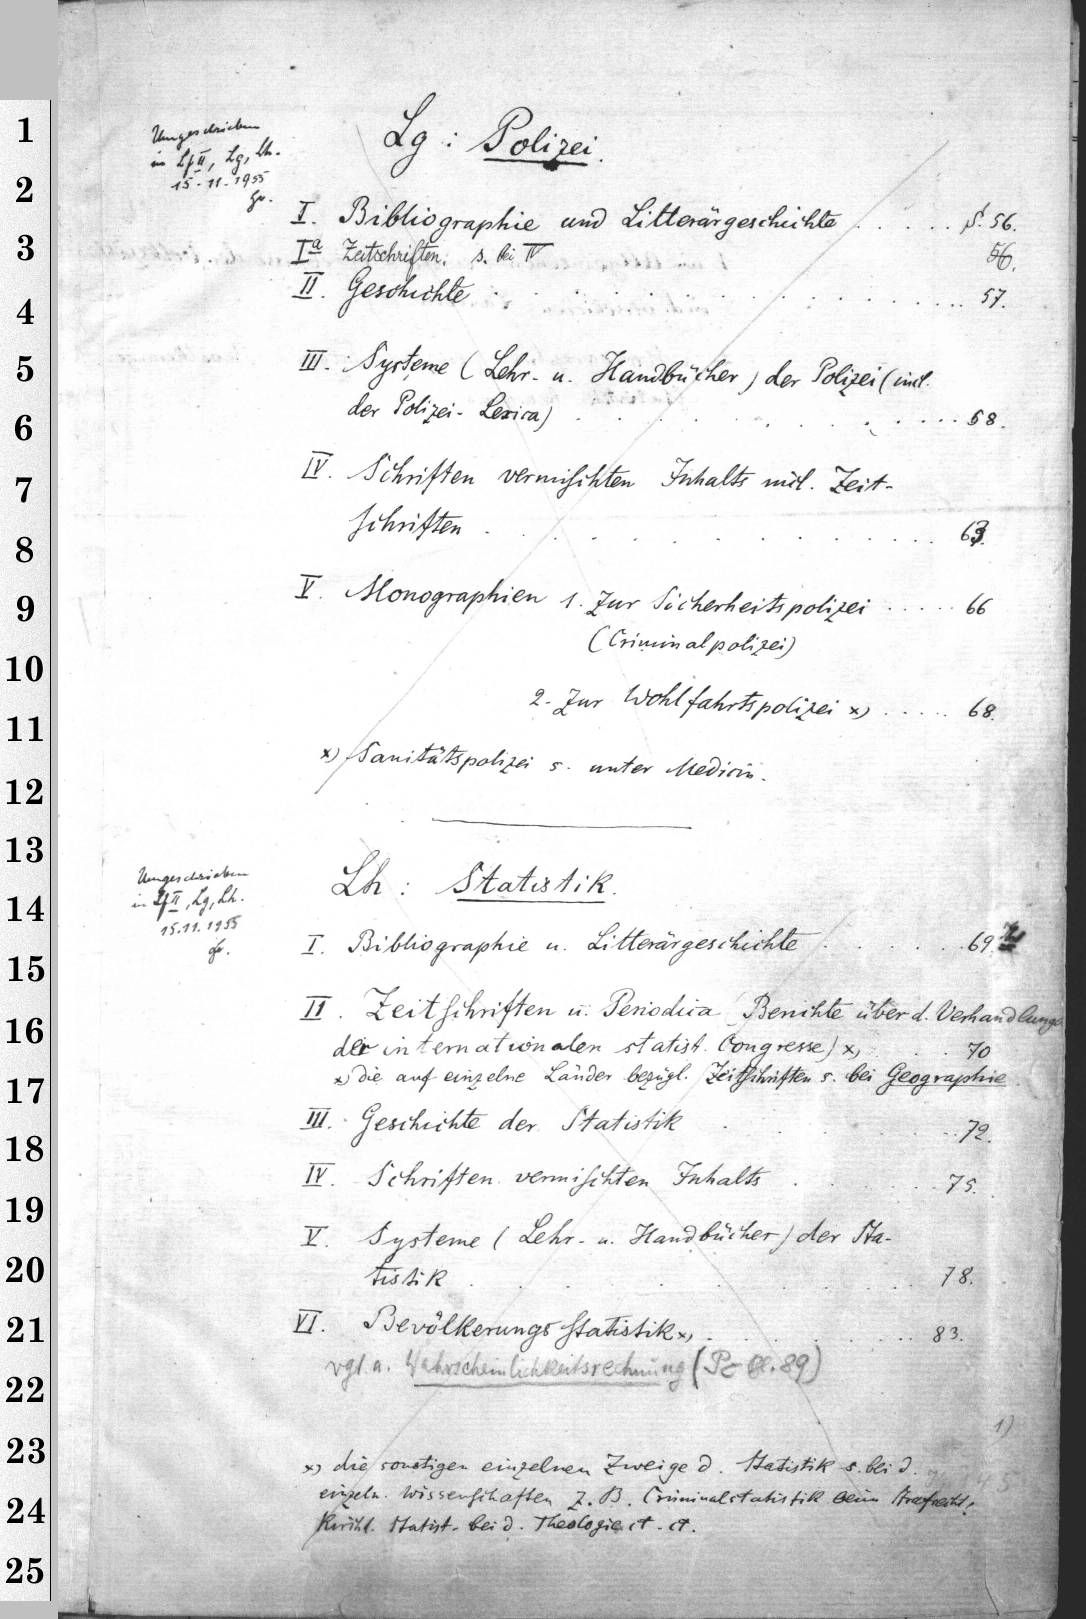 Umgeschrieben
in Lf II, Lg, Lh.
15.11.1955
Lg: Polizei.
I. Bibliographie und Litterärgeschichte . . . . . S. 56.
Ia Zeitschriften, s. bei IV 56.
II. Geschichte . . . . . 57.
III. Systeme (Lehr- u. Handbücher) der Polizei (incl.
der Polizei-Lexica) . . . . . 58.
IV. Schriften vermischten Inhalts incl. Zeit-
schriften . . . . . 63.
V. Monographien 1. Zur Sicherheitspolizei . . . . . 66
(Criminalpolizei)
2. Zur Wohlfahrtspolizei x) . . . . . 68.
x) Sanitätspolizei s. unter Medicin.
Umgeschrieben
in Lf II, Lg, Lh.
15.11.1955
Lh: Statistik.
I. Bibliographie u. Litterärgeschichte . . . . . 69.
II. Zeitschriften u. Periodica (Berichte über d. Verhandlungen
der internationalen statist. Congresse) x) . . 70
x) die auf einzelne Länder bezügl. Zeitschriften s. bei Geographie.
III. Geschichte der Statistik . . . . . 72.
IV. Schriften vermischten Inhalts . . . . . 75.
V. Systeme (Lehr- u. Handbücher) der Sta-
tistik . . . . . 78.
VI. Bevölkerungsstatistik x) . . . . . 83.
vgl. a. Wahrscheinlichkeitsrechnung (Pc Bl. 89)
1)
x) die sonstigen einzelnen Zweige d. Statistik s. bei d.
einzeln. Wissenschaften z. B. Criminalstatistik beim Strafrecht,
Kirchl. Statist. bei d. Theologie ct. ct.
1
2
3
4
5
6
7
8
9
10
11
12
13
14
15
16
17
18
19
20
21
22
23
24
25